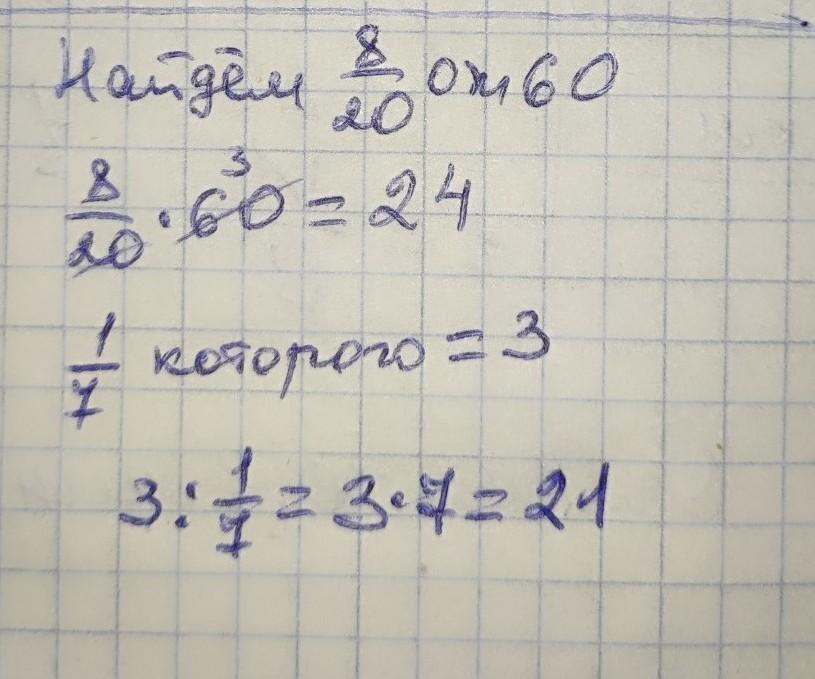 Найдём 8/20 от 60
8/20 · 60 3 = 24
1/7 которого = 3
3 : 1/7 = 3 · 7 = 21